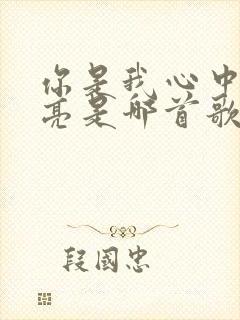 你是我心中
亮是那首歌
段國忠